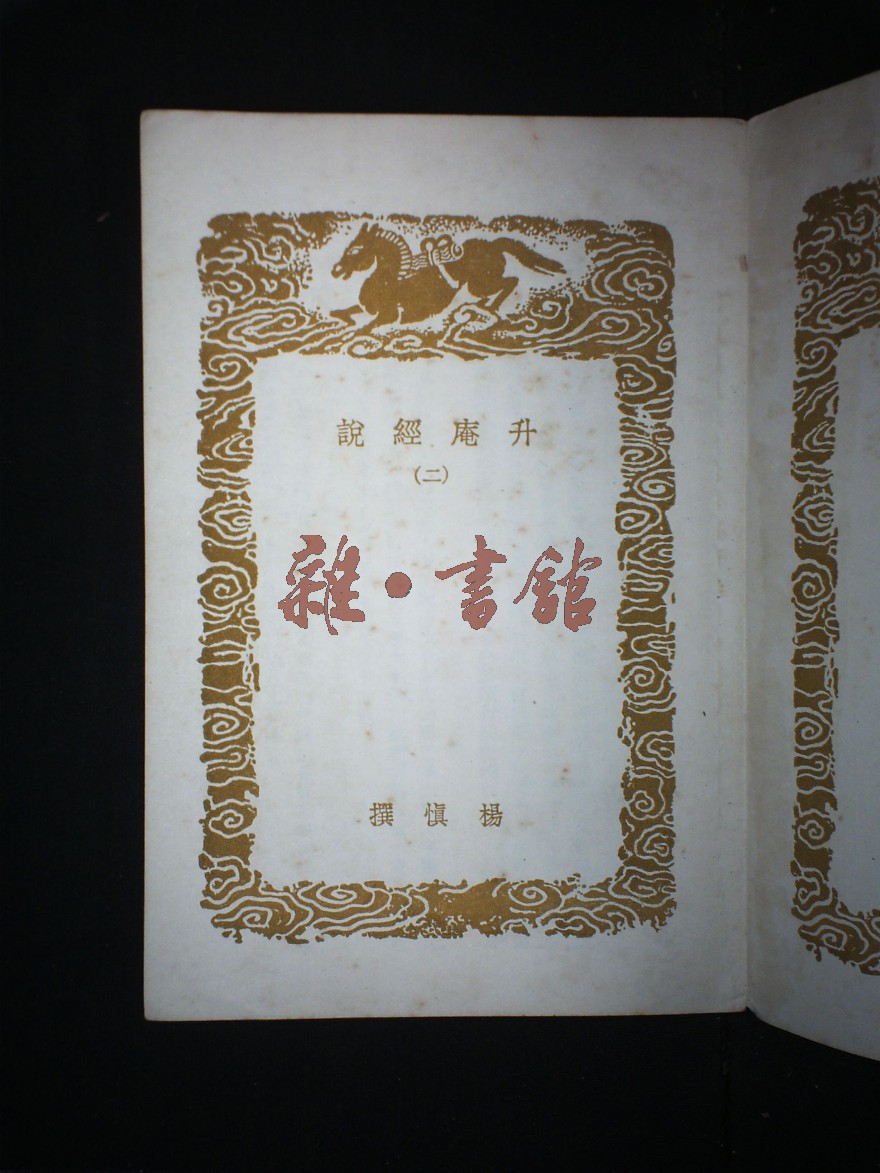 升庵經說
(二)
雜·書館
楊慎撰